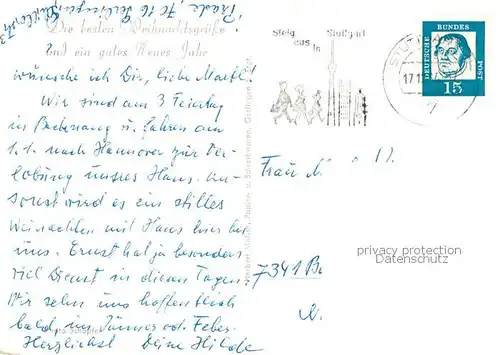 Die besten Weihnachtsgrüße
und ein gutes Neues Jahr
wünsche ich Dir, liebe
Wir sind am 3 Feiertag
in Backnang u. fahren am
1.1. nach Hannover zur Ver-
lobung unsres Hans. An-
sonst wird es ein stilles
Weinachten mit Hans hier bei
uns. Ernst hat ja besonders
viel Dienst in diesen Tagen.
Wir sehn uns hoffentlich
bald, im Jänner od. Feber.
Herzlichst Deine Hilde
Steig aus in Stuttgart
STUTTGART
17.1
DEUTSCHE BUNDES POST
15
Frau
privacy protection
Datenschutz
7341